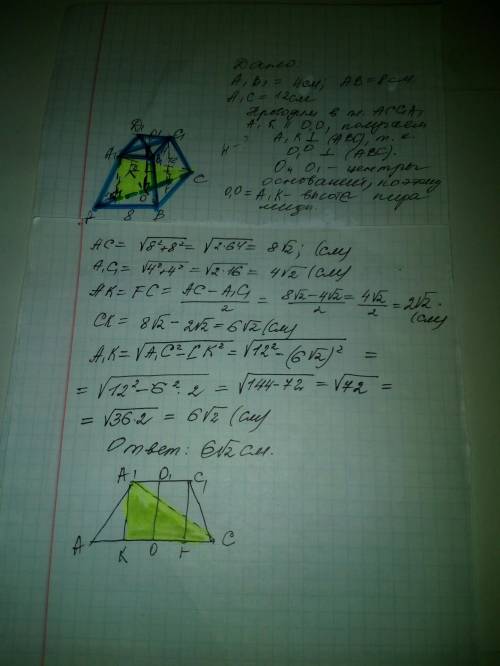 Дано
A₁B₁ = 4см; AB = 8см
A₁C = 12см
Проводим в т. ACC₁A₁
A₁K ∥ O,O, получаем
A₁K ⊥ (ABC), т. к.
O₁O ⊥ (ABC).
O и O₁ - центры
оснований, поэтому
O₁O = A₁K - высота пира
миды.
D₁ O₁ C₁
A₁ B₁
H
C
K O
A 8 B
AC = √8²+8² = √2·64 = 8√2; (см)
A₁C₁ = √4²+4² = √2·16 = 4√2 (см)
AK = FC = AC - A₁C₁/2 = 8√2 - 4√2/2 = 4√2/2 = 2√2.
(см)
CK = 8√2 - 2√2 = 6√2 (см)
A₁K = √A₁C² - CK² = √12² - (6√2)² =
= √12² - 6²·2 = √144 - 72 = √72 =
= √36·2 = 6√2 (см)
Ответ: 6√2 см.
A₁ O₁ C₁
A K O F C